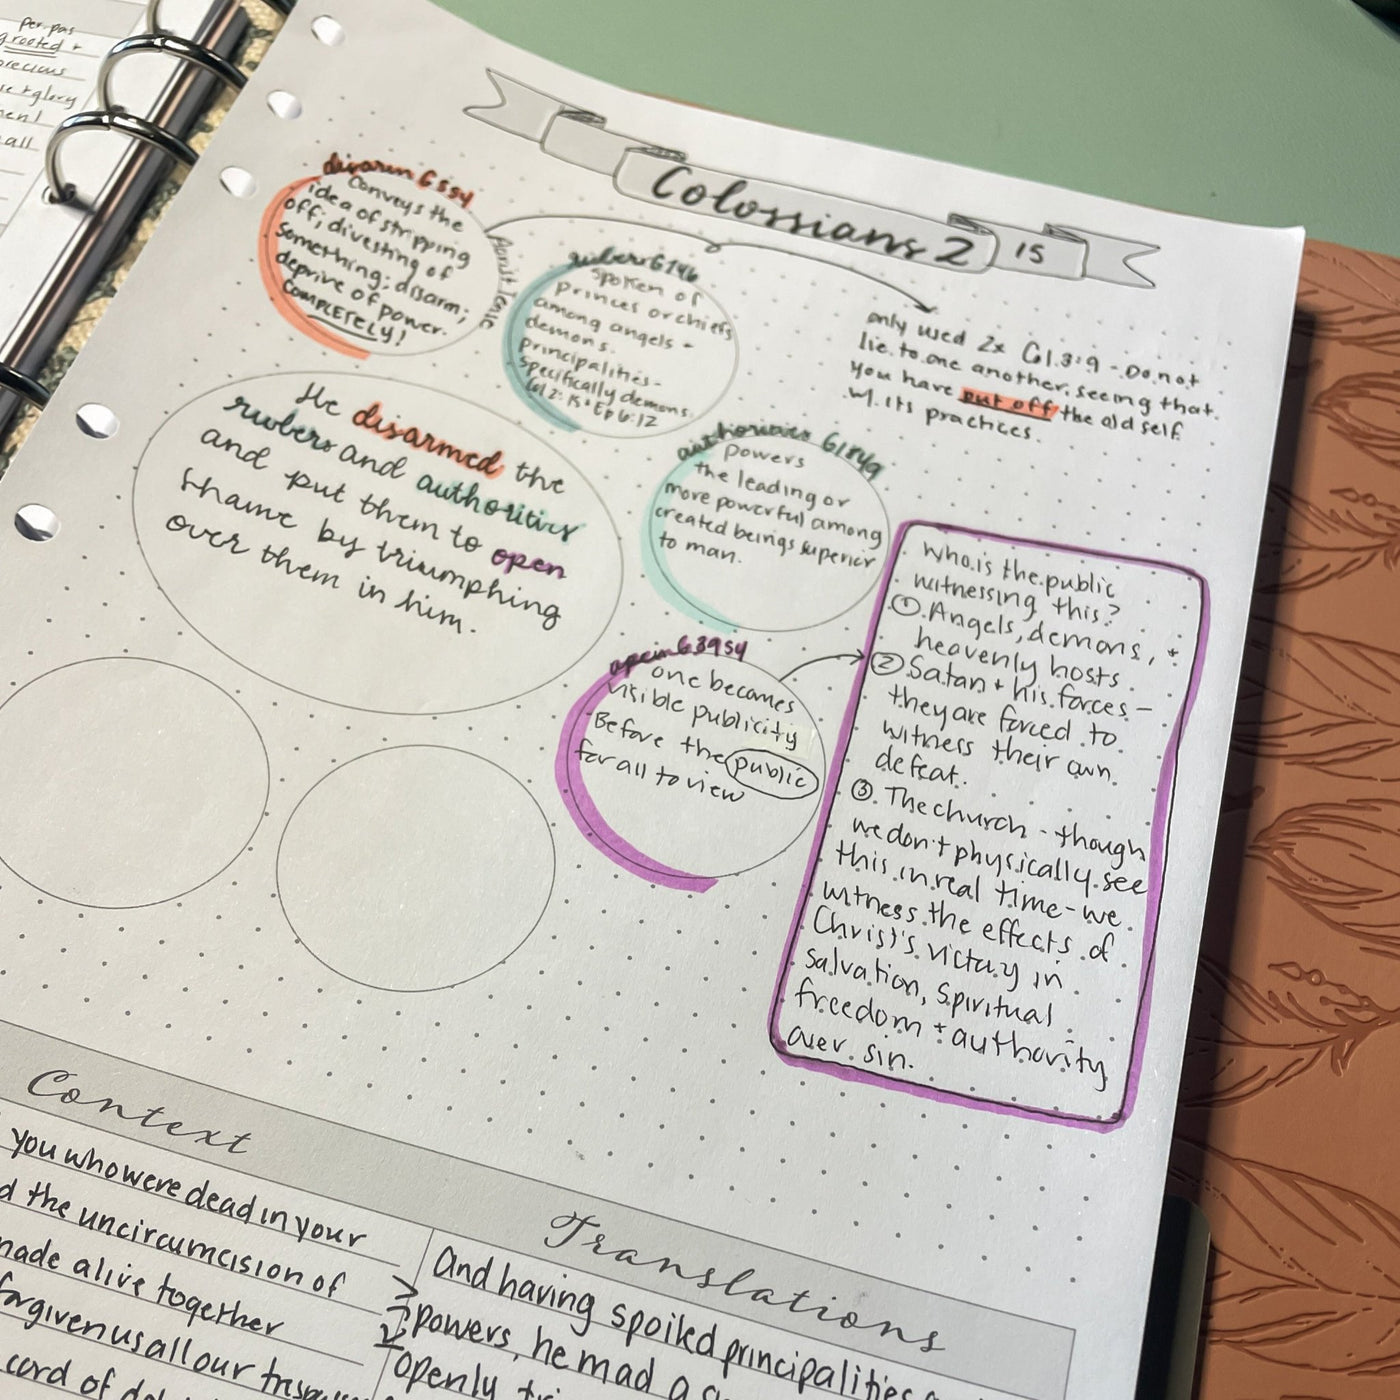 per pas
grooted +
precious
se + glory
ment
all
Colossians 2 15
disarm G554
Conveys the
idea of stripping
off; divesting of
something; disarm;
deprive of power.
COMPLETELY!
Aorist Tense
rulers G746
spoken of
princes or chiefs
among angels +
demons.
principalities -
specifically demons.
Col 2:15 + Ep 6:12
only used 2x Col. 3:9 - Do not
lie to one another, seeing that
you have put off the old self
w/ its practices.
authorities G1849
powers
the leading or
more powerful among
created beings superior
to man.
He disarmed the
rulers and authorities
and put them to open
shame by triumphing
over them in him.
open G3954
one becomes
visible publicity
Before the public
for all to view
Who is the public
witnessing this?
① Angels, demons, +
heavenly hosts
② Satan + his forces -
they are forced to
witness their own
defeat.
③ The church - though
we don't physically see
this in real time - we
witness the effects of
Christ's victory in
salvation, spiritual
freedom + authority
over sin.
Context
you who were dead in your
d the uncircumcision of
made alive together
forgiven us all our trespass
cord of deb
Translations
And having spoiled principalities a
powers, he mad a
openly, tri